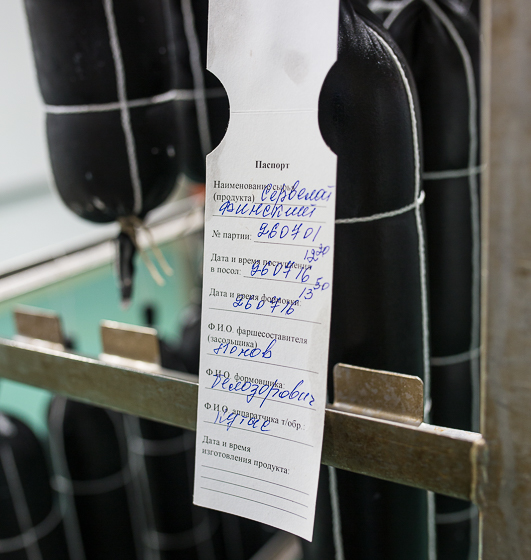 Паспорт
Наименование сырья
(продукта) Сервелат
Финский
№ партии: 260701
Дата и время поступления 12 30
в посол: 260716
Дата и время формовки: 13 50
260716
Ф.И.О. фаршесоставителя
(засольщика)
Ф.И.О. формовщика:
Ф.И.О. аппаратчика т/обр.:
Дата и время
изготовления продукта: